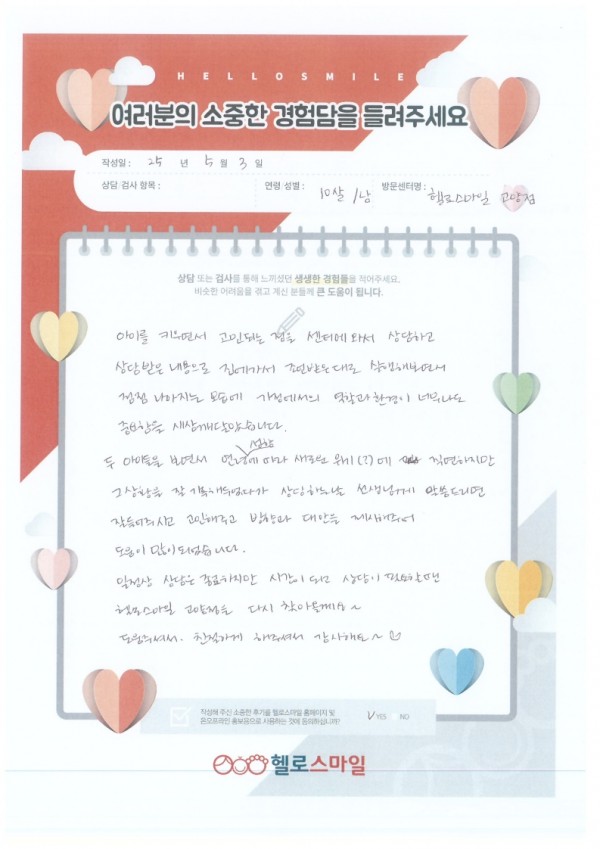 HELLOSMILE
여러분의 소중한 경험담을 들려주세요
작성일 : 25 년 5 월 3 일
상담·검사 항목 : 연령·성별 : 10살 / 남 방문센터명 : 헬로스마일 고양점
상담 또는 검사를 통해 느끼셨던 생생한 경험들을 적어주세요.
비슷한 어려움을 겪고 계신 분들께 큰 도움이 됩니다.
아이를 키우면서 고민되는 점을 센터에 와서 상담하고
상담받은 내용으로 집에가서 조언받은대로 실행해보면서
점점 나아지는 모습에 가정에서의 역할과 환경이 너무나도
중요함을 세삼 깨달았습니다.
두 아이들을 보면서 연년에 성향 따라 새로운 위기(?)에 직면하지만
그상황을 잘 기록해두었다가 상담하는날 선생님께 말씀드리면
잘들어주시고 고민해주고 방향과 대안을 제시해주어
도움이 많이 되었습니다.
일정상 상담은 종료하지만 시간이 되고 상담이 필요할땐
헬로스마일 고양점을 다시 찾아올게요~
도움주셔서, 친절하게 해주셔서 감사해요~
작성해 주신 소중한 후기를 헬로스마일 홈페이지 및
온오프라인 홍보용으로 사용하는 것에 동의하십니까?
V YES NO
헬로스마일